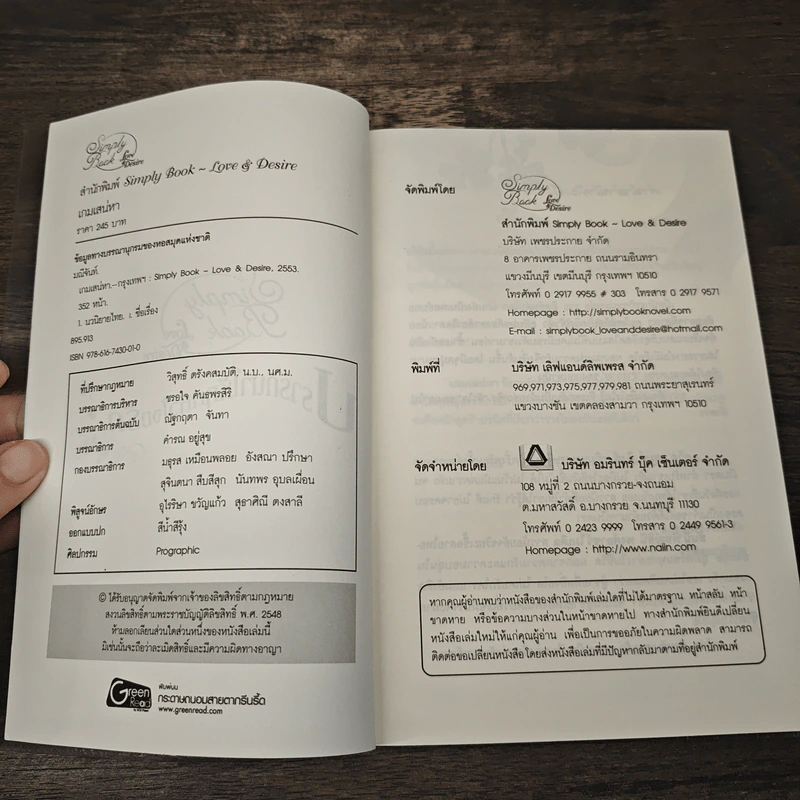 Simply Book Love & Desire
สำนักพิมพ์ Simply Book ~ Love & Desire
เกมเสน่หา
ราคา 245 บาท
ข้อมูลทางบรรณานุกรมของหอสมุดแห่งชาติ
มณีจันท์.
เกมเสน่หา.--กรุงเทพฯ : Simply Book ~ Love & Desire, 2553.
352 หน้า.
1. นวนิยายไทย. I. ชื่อเรื่อง
895.913
ISBN 978-616-7430-01-0
ที่ปรึกษากฎหมาย วิสุทธิ์ ตรังคสมบัติ, น.บ., นศ.ม.
บรรณาธิการบริหาร ชรอใจ คันธพรสิริ
บรรณาธิการต้นฉบับ ณัฐกฤตา จันทา
บรรณาธิการ คำรณ อยู่สุข
กองบรรณาธิการ มธุรส เหมือนพลอย อังสณา ปรึกษา
สุจินตนา สืบสีสุก นันทพร อุบลเผื่อน
พิสูจน์อักษร อุไรริษา ขวัญแก้ว สุธาศิณี ตงสาลี
ออกแบบปก สีน้ำสีรุ้ง
ศิลปกรรม Prographic
© ได้รับอนุญาตจัดพิมพ์จากเจ้าของลิขสิทธิ์ตามกฎหมาย
สงวนลิขสิทธิ์ตามพระราชบัญญัติลิขสิทธิ์ พ.ศ. 2548
ห้ามลอกเลียนส่วนใดส่วนหนึ่งของหนังสือเล่มนี้
มิเช่นนั้นจะถือว่าละเมิดสิทธิ์และมีความผิดทางอาญา
Green Read
พิมพ์บน
กระดาษถนอมสายตากรีนรี้ด
www.greenread.com
จัดพิมพ์โดย Simply Book Love & Desire
สำนักพิมพ์ Simply Book ~ Love & Desire
บริษัท เพชรประกาย จำกัด
8 อาคารเพชรประกาย ถนนรามอินทรา
แขวงมีนบุรี เขตมีนบุรี กรุงเทพฯ 10510
โทรศัพท์ 0 2917 9955 # 303 โทรสาร 0 2917 9571
Homepage : http://simplybooknovel.com
E-mail : simplybook_loveanddesire@hotmail.com
พิมพ์ที่ บริษัท เลิฟแอนด์ลิพเพรส จำกัด
969,971,973,975,977,979,981 ถนนพระยาสุเรนทร์
แขวงบางชัน เขตคลองสามวา กรุงเทพฯ 10510
จัดจำหน่ายโดย บริษัท อมรินทร์ บุ๊ค เซ็นเตอร์ จำกัด
108 หมู่ที่ 2 ถนนบางกรวย-จงถนอม
ต.มหาสวัสดิ์ อ.บางกรวย จ.นนทบุรี 11130
โทรศัพท์ 0 2423 9999 โทรสาร 0 2449 9561-3
Homepage : http://www.naiin.com
หากคุณผู้อ่านพบว่าหนังสือของสำนักพิมพ์เล่มใดที่ไม่ได้มาตรฐาน หน้าสลับ หน้า
ขาดหาย หรือข้อความบางส่วนในหน้าขาดหายไป ทางสำนักพิมพ์ยินดีเปลี่ยน
หนังสือเล่มใหม่ให้แก่คุณผู้อ่าน เพื่อเป็นการขออภัยในความผิดพลาด สามารถ
ติดต่อขอเปลี่ยนหนังสือโดยส่งหนังสือเล่มที่มีปัญหากลับมาตามที่อยู่สำนักพิมพ์